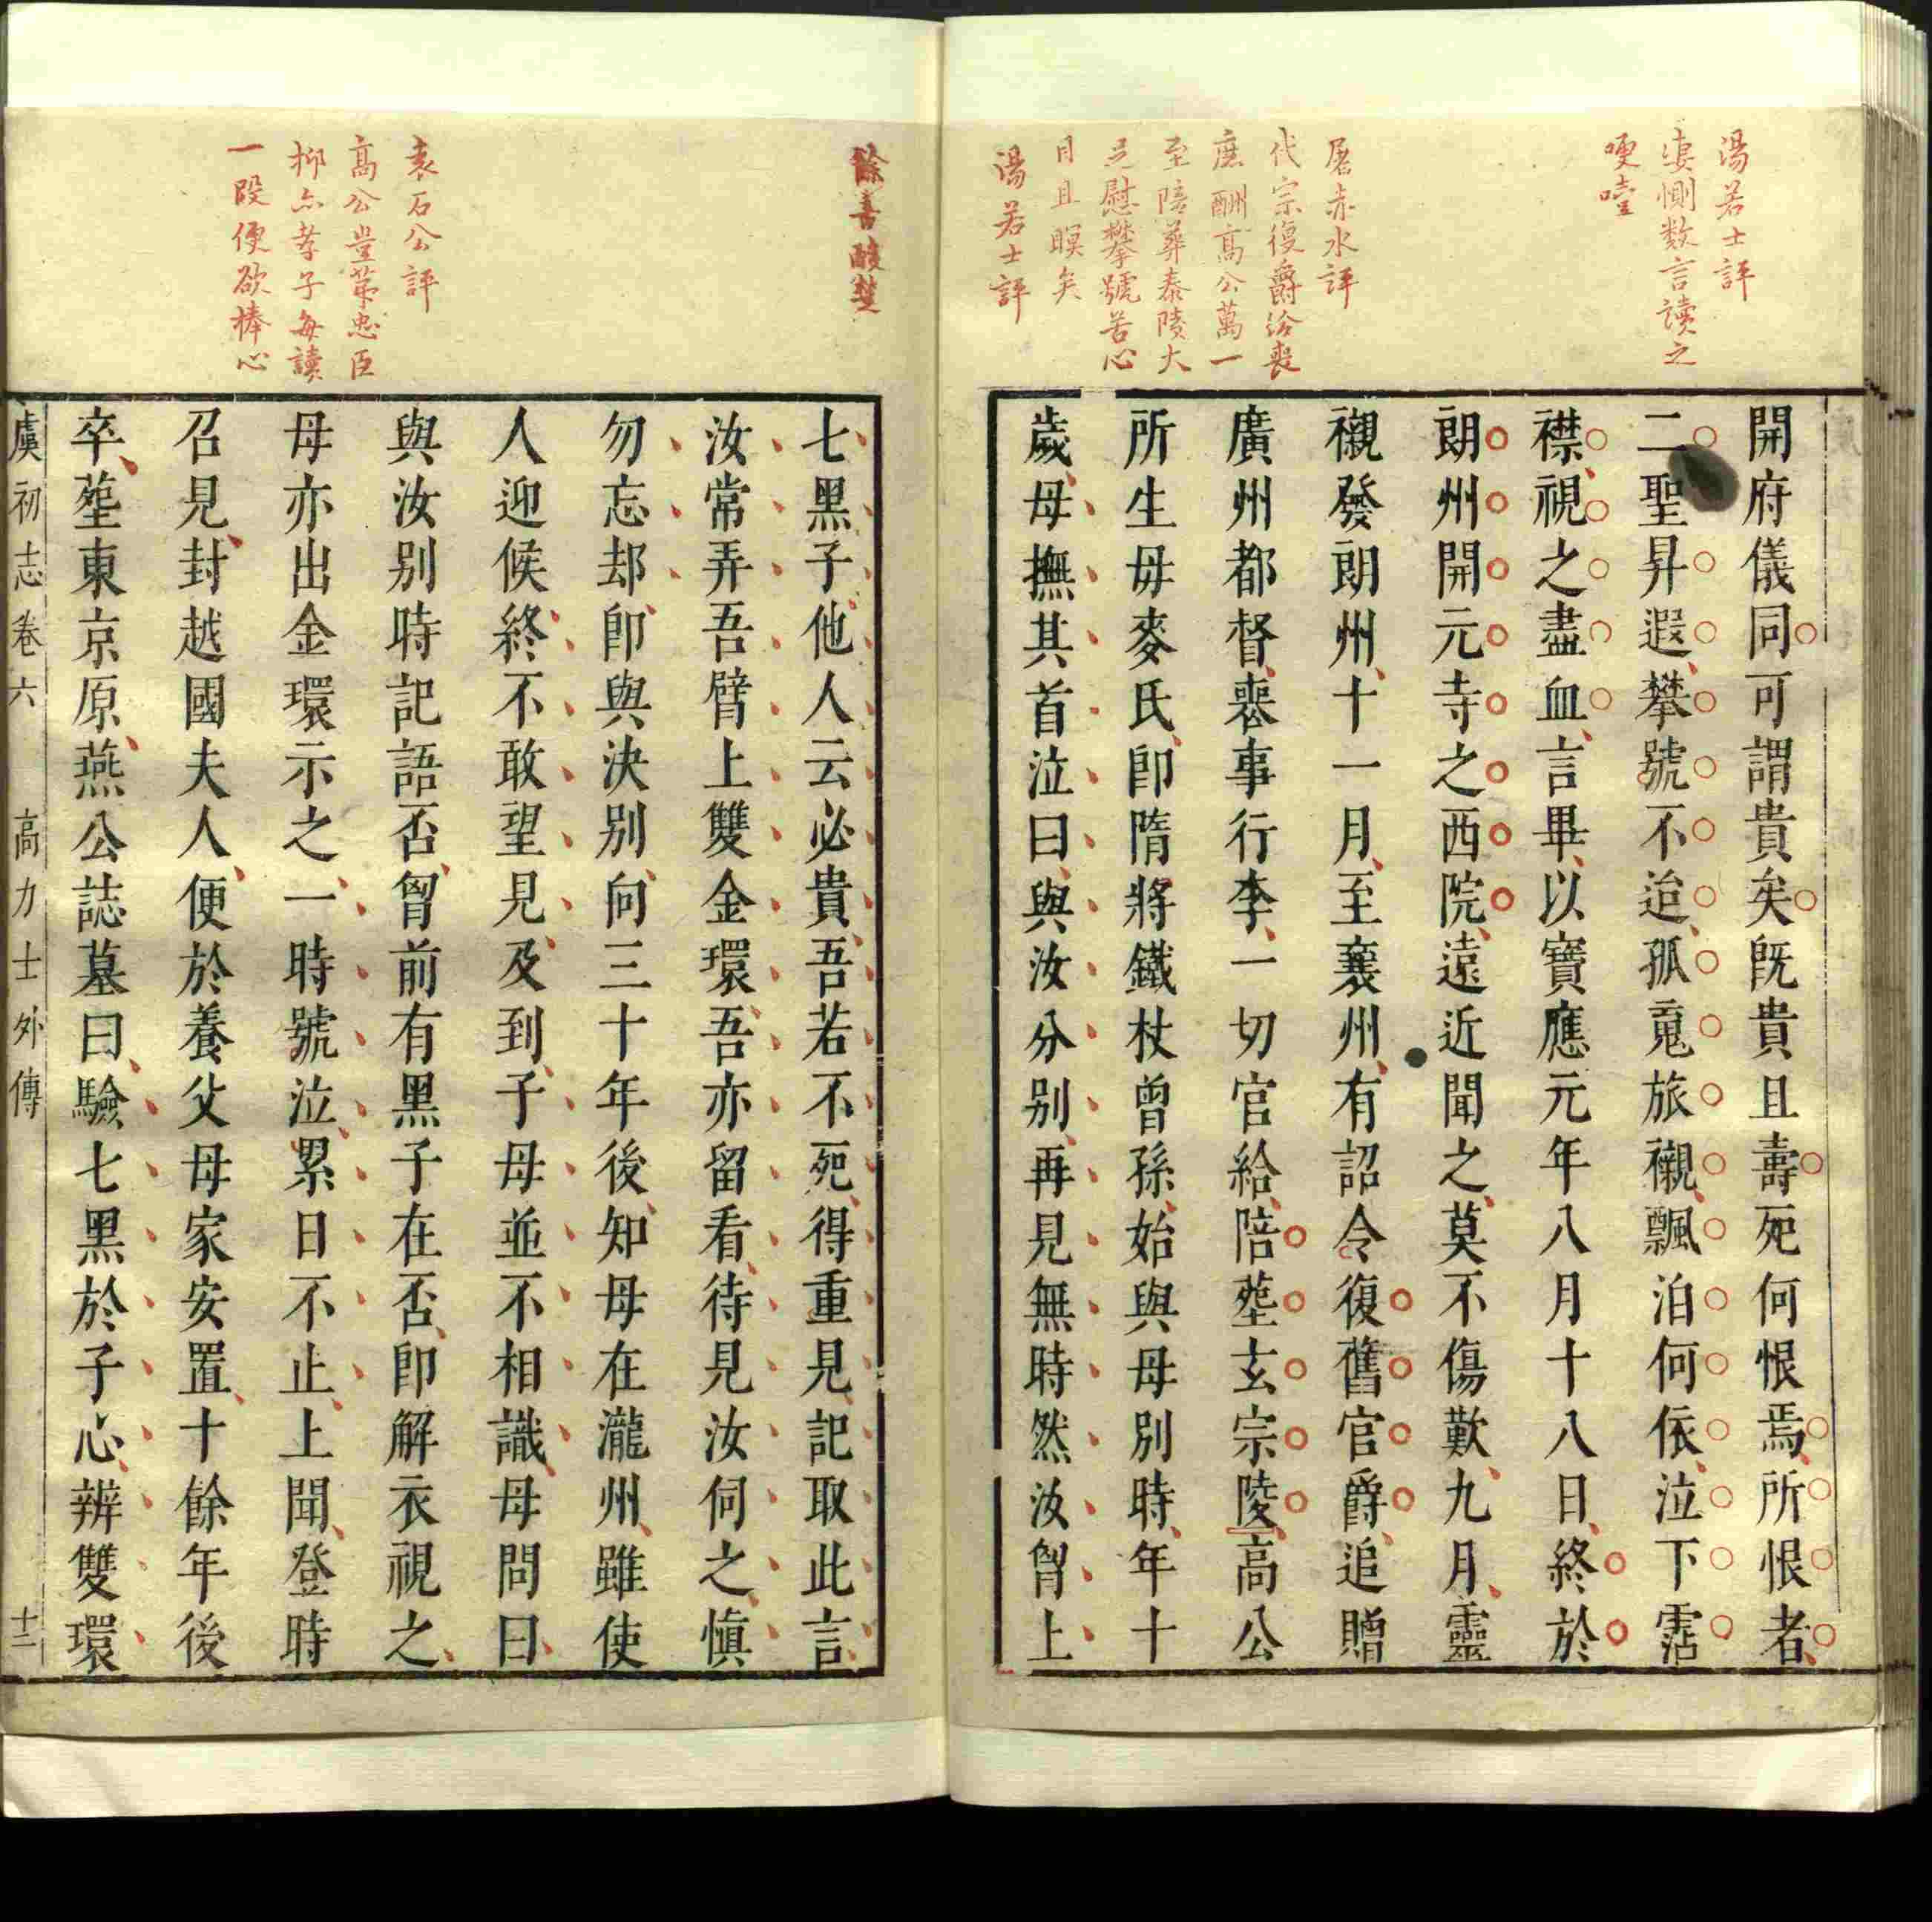 湯若士評
悽惻数言讀之
哽噎
屠赤水評
代宗復爵給喪
庶酬高公萬一
至陪葬泰陵大
足慰攀號苦心
目且瞑矣
湯若士評
開府儀同可謂貴矣既貴且壽死何恨焉所恨者
二聖昇遐攀號不迨孤䰟旅櫬飄泊何依泣下霑
襟視之盡血言畢以寶應元年八月十八日終於
朗州開元寺之西院遠近聞之莫不傷歎九月靈
櫬發朗州十一月至襄州有詔令復舊官爵追贈
廣州都督喪事行李一切官給陪塟玄宗陵高公
所生母麥氏即隋將鐵杖曾孫始與母別時年十
歲母撫其首泣曰與汝分别再見無時然汝胷上
餘喜酸楚
袁石公評
高公豈第忠臣
抑亦孝子每讀
一段便欲捧心
七黑子他人云必貴吾若不死得重見記取此言
汝常弄吾臂上雙金環吾亦留看待見汝伺之慎
勿忘却即與決别向三十年後知母在瀧州雖使
人迎候終不敢望見及到子母並不相識母問曰
與汝别時記語否胷前有黑子在否即解衣視之
母亦出金環示之一時號泣累日不止上聞登時
召見封越國夫人便於養父母家安置十餘年後
卒塟東京原燕公誌墓曰驗七黑於子心辨雙環
虞初志卷六 高力士外傳 十二